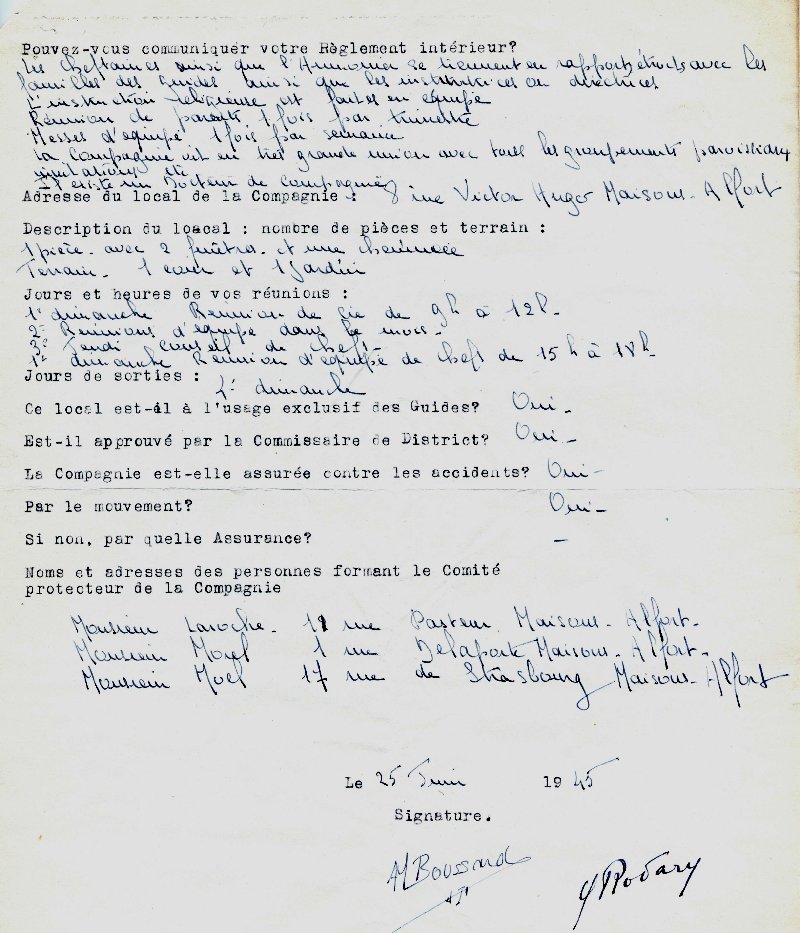 Pouvez-vous communiquer votre Règlement intérieur?
Les Cheftaines ainsi que l'Aumonier se tiennent en rapports étroits avec les
familles des Guides ainsi que les institutrices ou directrices
L'instruction religieuse est faite en équipe
Réunion de parents 1 fois par trimestre
Messes d'équipe 1 fois par semaine
La Compagnie vit en très grande union avec tous les groupements paroissiaux
etc
Il existe un Docteur de Compagnie
Adresse du local de la Compagnie : 8 rue Victor Hugo Maisons-Alfort
Description du loacal : nombre de pièces et terrain :
1 pièce avec 2 fenêtres et une cheminée
Terrain - 1 cour et 1 Jardin
Jours et heures de vos réunions :
1er dimanche Réunion de Cie de 9h à 12h -
2e Réunions d'équipe dans le mois -
3e Jeudi Conseil de Chefs -
1er dimanche Réunion d'équipe de Chefs de 15h à 18h -
Jours de sorties :
4e dimanche
Ce local est-il à l'usage exclusif des Guides? Oui -
Est-il approuvé par la Commissaire de District? Oui -
La Compagnie est-elle assurée contre les accidents? Oui -
Par le mouvement? Oui -
Si non, par quelle Assurance? -
Noms et adresses des personnes formant le Comité
protecteur de la Compagnie
Monsieur Laroche - 19 rue Pasteur Maisons-Alfort -
Monsieur Morel 1 rue Delaporte Maisons-Alfort -
Monsieur Moel 17 rue de Strasbourg Maisons-Alfort
Le 25 Juin 1945
Signature.
AM Boussard
Y Rodary